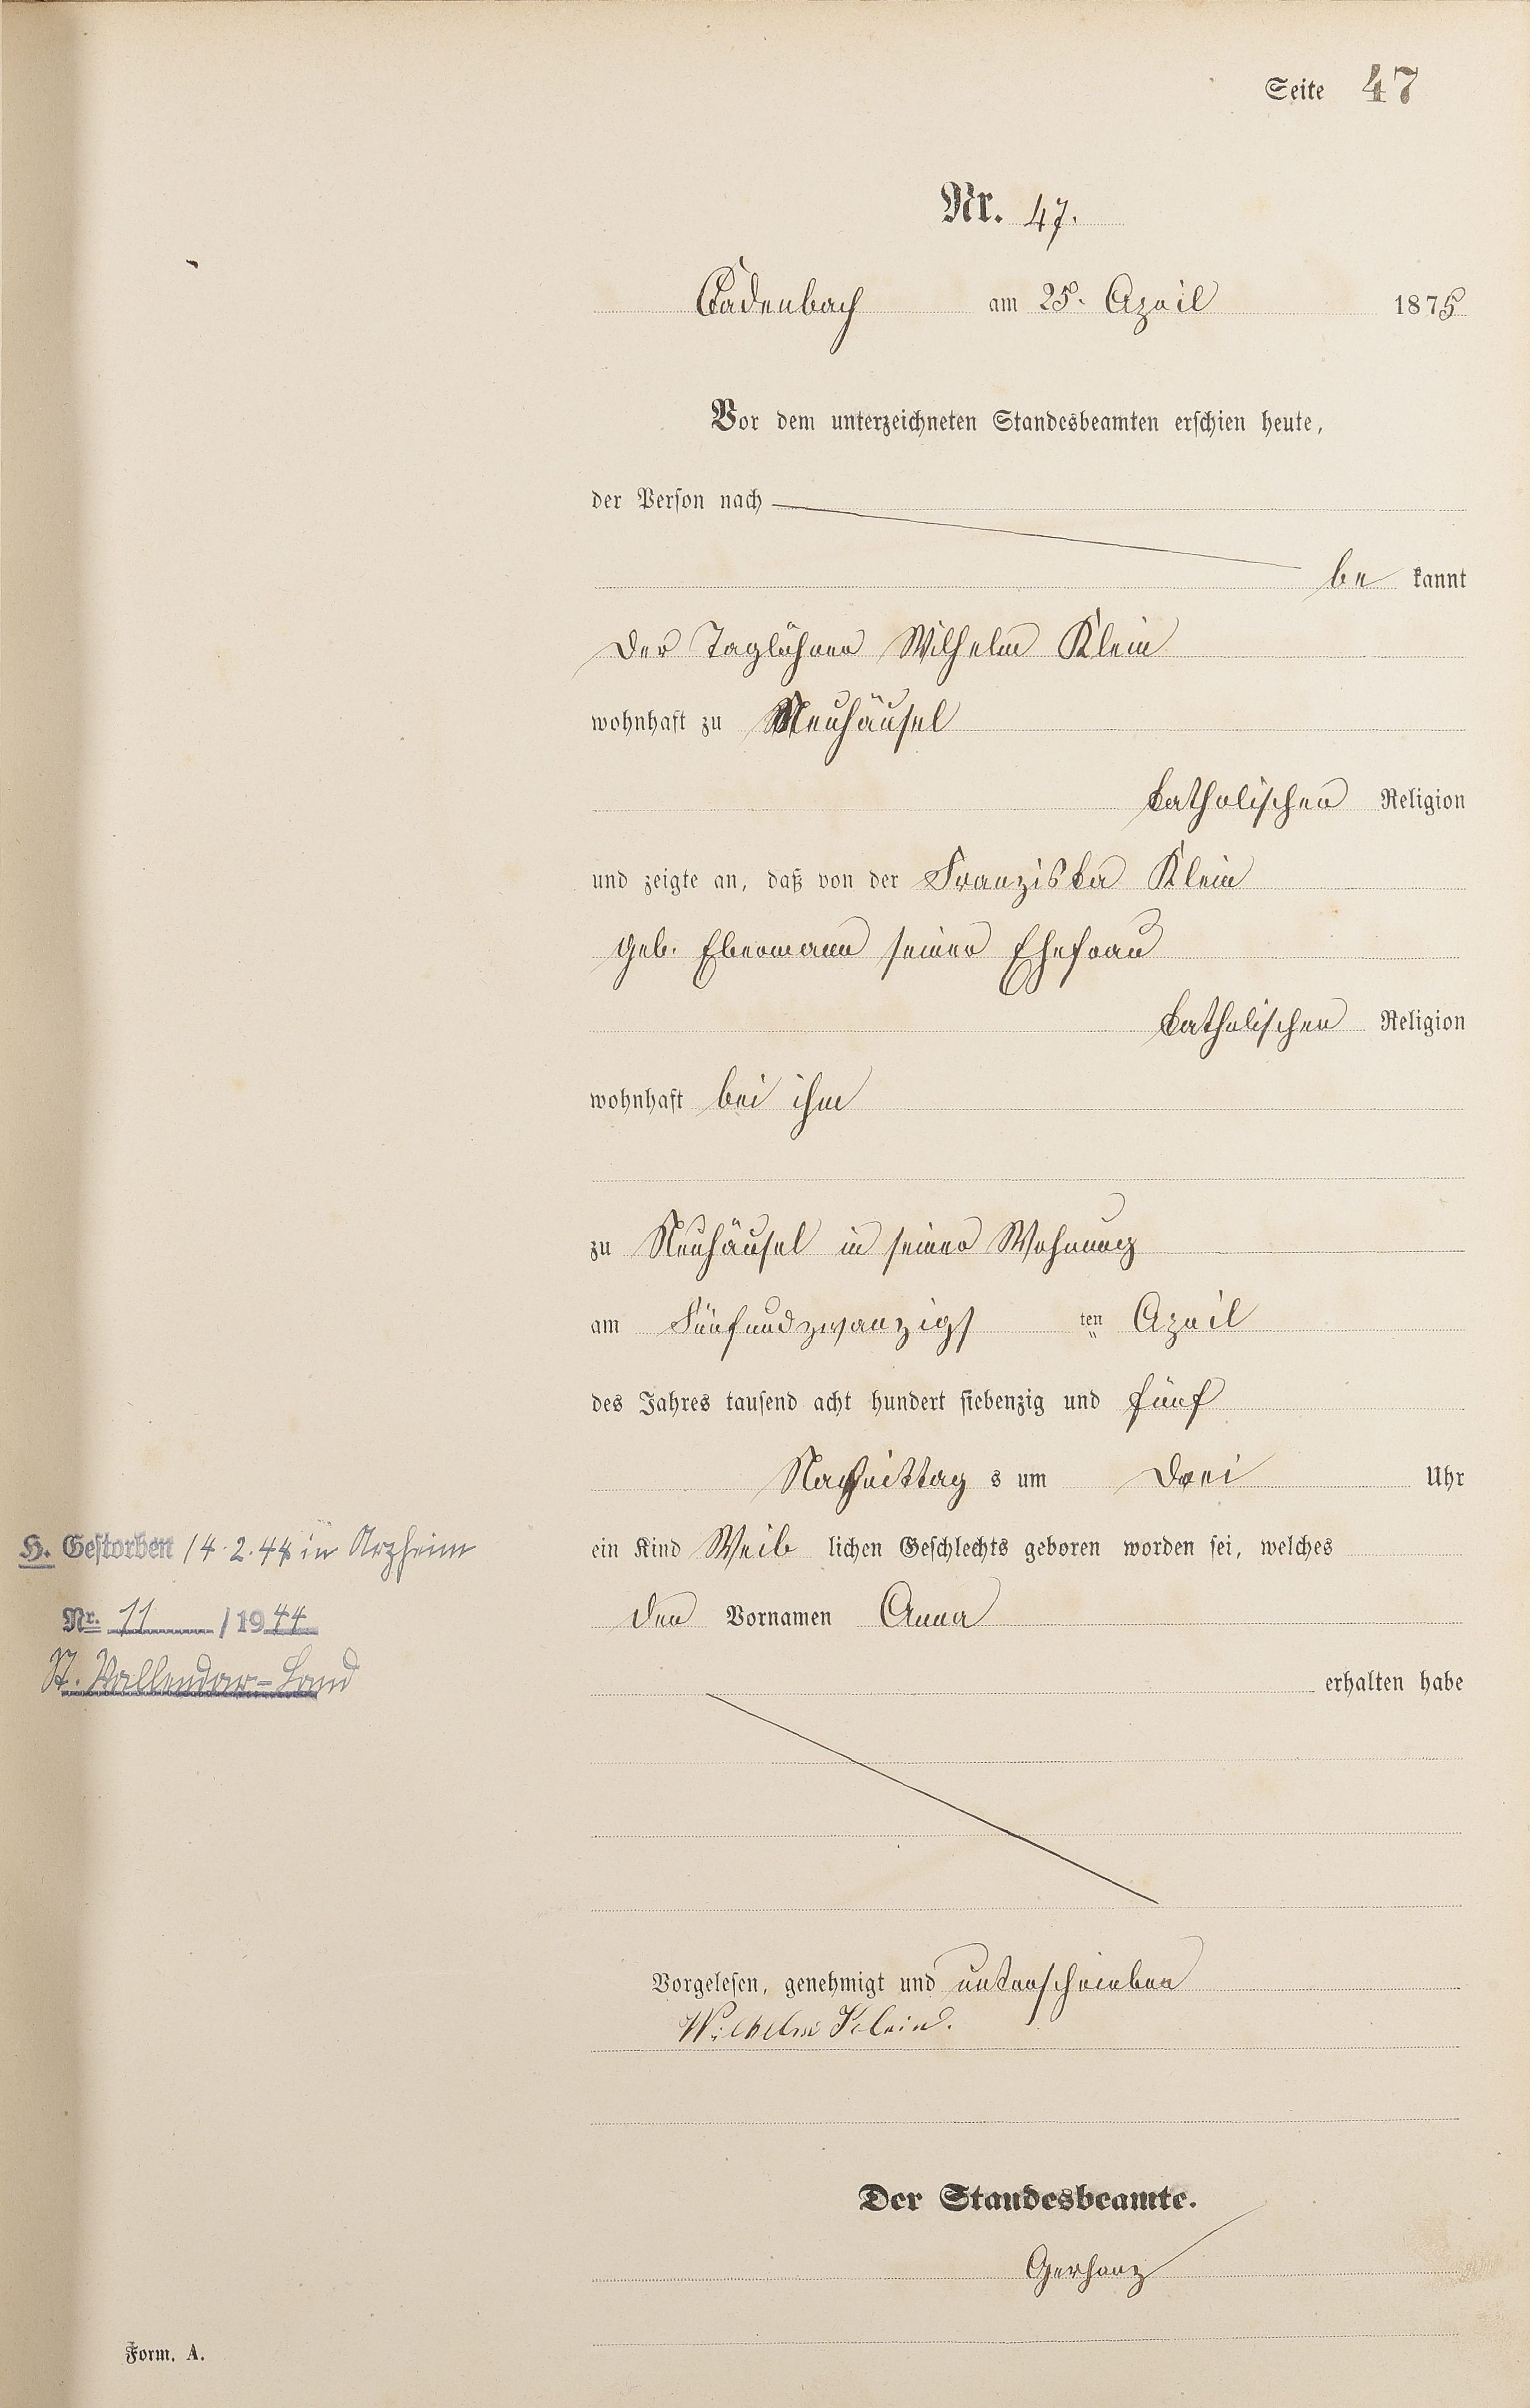 Seite 47
Nr. 47.
Cadenbach am 25. April 1875
Vor dem unterzeichneten Standesbeamten erschien heute,
der Person nach
be kannt
der Taglöhner Wilhelm Klein
wohnhaft zu Neuhäusel
katholischer Religion
und zeigte an, daß von der Franziska Klein
geb. Ebermann seiner Ehefrau
katholischer Religion
wohnhaft bei ihm
zu Neuhäusel in seiner Wohnung
am Fünfundzwanzigs ten April
des Jahres tausend acht hundert siebenzig und fünf
Nachmittag s um drei Uhr
ein Kind Weib lichen Geschlechts geboren worden sei, welches
den Vornamen Anna
erhalten habe
H. Gestorben 14.2.44 in Arzheim
Nr. 11 /1944
St. Vallendar-Land
Vorgelesen, genehmigt und unterschrieben
Wilhelm Klein.
Der Standesbeamte.
Gerharz
Form. A.